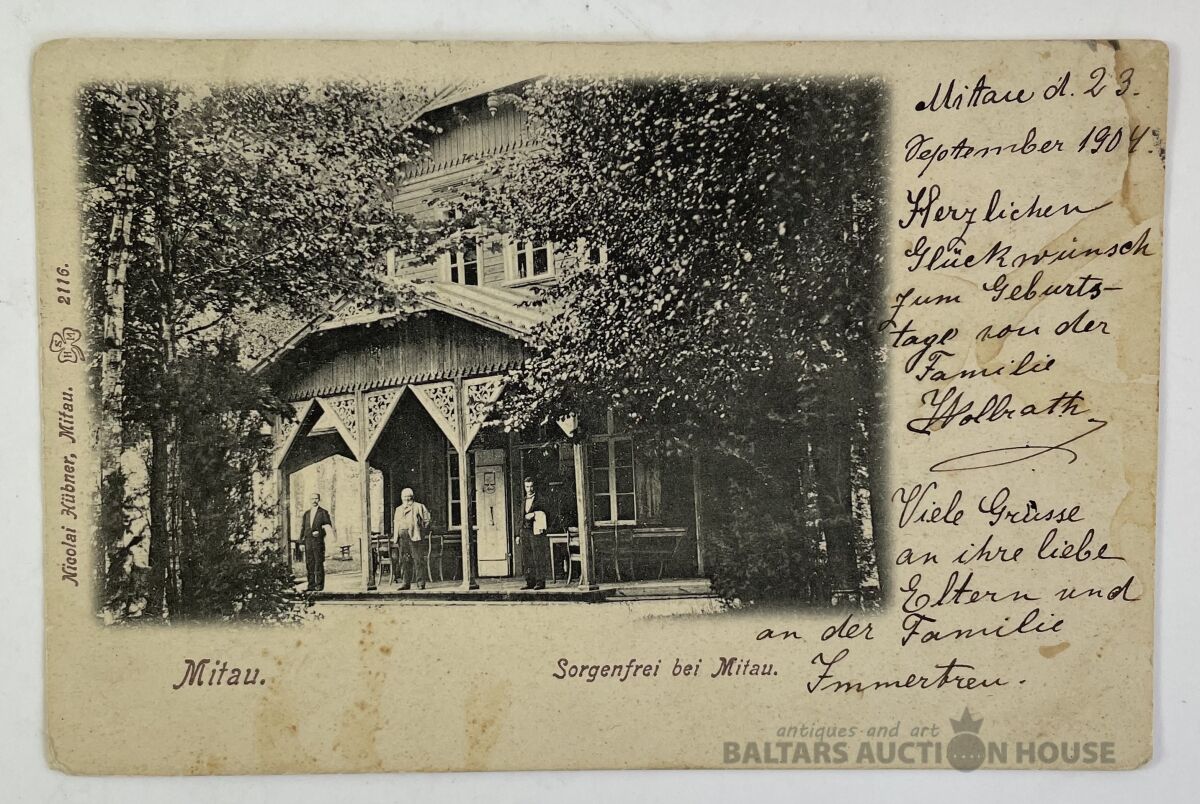 Mitau d. 23.
September 1904.
Herzlichen
Glückwunsch
zum Geburts-
tage von der
Familie
Wolbrath
Viele Grüsse
an ihre liebe
Eltern und
an der Familie
Immertreu.
Nicolai Hübner, Mitau.
2116.
Mitau.
Sorgenfrei bei Mitau.
antiques and art
BALTARS AUCTION HOUSE